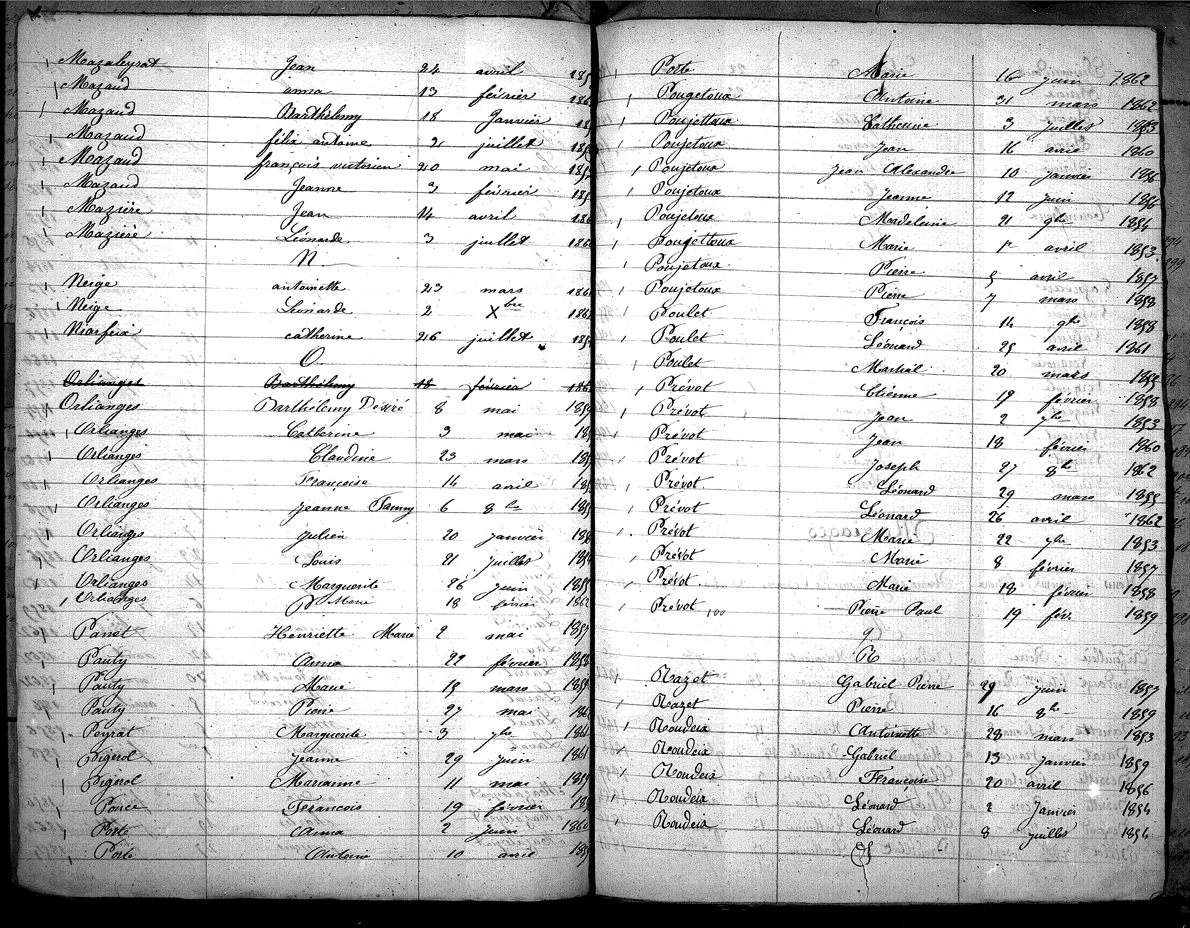 Mazaleyrat Jean 24 avril 185
Mazaud anna 13 février 186
Mazaud Barthélemy 18 Janvier 18
Mazaud félix antoine 21 juillet 185
Mazaud françois victorien 20 mai 185
Mazaud Jeanne 3 février 185
Mazière Jean 14 avril 186
Mazière Léonarde 3 juillet 186
N
Neige antoinette 23 mars 186
Neige Léonarde 2 Xbre 186
Niarfeix catherine 26 juillet 185
O
Orlianges Barthélemy 18 février 186
Orlianges Barthélemy Désiré 8 mai 185
Orlianges Catherine 3 mai 18
Orlianges Claudine 23 mars 185
Orlianges Françoise 14 avril 185
Orlianges Jeanne Fanny 6 8bre 185
Orlianges Julien 20 janvier 18
Orlianges Louis 21 juillet 185
Orlianges Marguerite 26 juin 185
Orlianges Marie 18 février 1862
P
Panet Henriette Marie 2 mai 1857
Pauty Anna 22 février 1858
Pauty Marie 15 mars 185
Pauty Pierre 27 mai 186
Peyrat Marguerite 3 7bre 186
Pigerol Jeanne 29 juin 1861
Pigerol Marianne 11 mai 185
Ponce François 19 février 185
Porte Anna 2 juin 1860
Porte Antoine 10 avril 185
Porte Marie 16 juin 1862
Pougetoux Antoine 31 mars 1862
Poujettoux Catherine 3 juillet 1863
Poujetoux Jean 16 avril 1860
Poujetoux Jean Alexandre 10 janvier 1856
Poujetoux Jeanne 12 juin 1856
Poujetoux Madeleine 21 9bre 1854
Poujettoux Marie 1er avril 1853
Poujetoux Pierre 5 avril 1857
Poujetoux Pierre 7 mars 1858
Poulet François 14 9bre 1858
Poulet Léonard 25 avril 1861
Poulet Martial 20 mars 1855
Prévot Etienne 19 février 1858
Prévot Jean 2 7bre 1853
Prévot Jean 18 février 1860
Prévot Joseph 27 8bre 1862
Prévot Léonard 29 mars 1855
Prévot Léonard 26 avril 1862
Prévot Marie 22 7bre 1853
Prévot Marie 8 février 1857
Prévot Marie 18 février 1858
Prévot 100 Pierre Paul 19 fév. 1859
Q
R
Razet Gabriel Pierre 29 juin 1857
Razet Pierre 16 8bre 1859
Roudeix Antoinette 28 mars 1853
Roudeix Gabriel 13 janvier 1859
Roudeix Françoise 20 avril 1856
Roudeix Léonard 2 Janvier 1854
Roudeix Léonard 8 juillet 1856
S